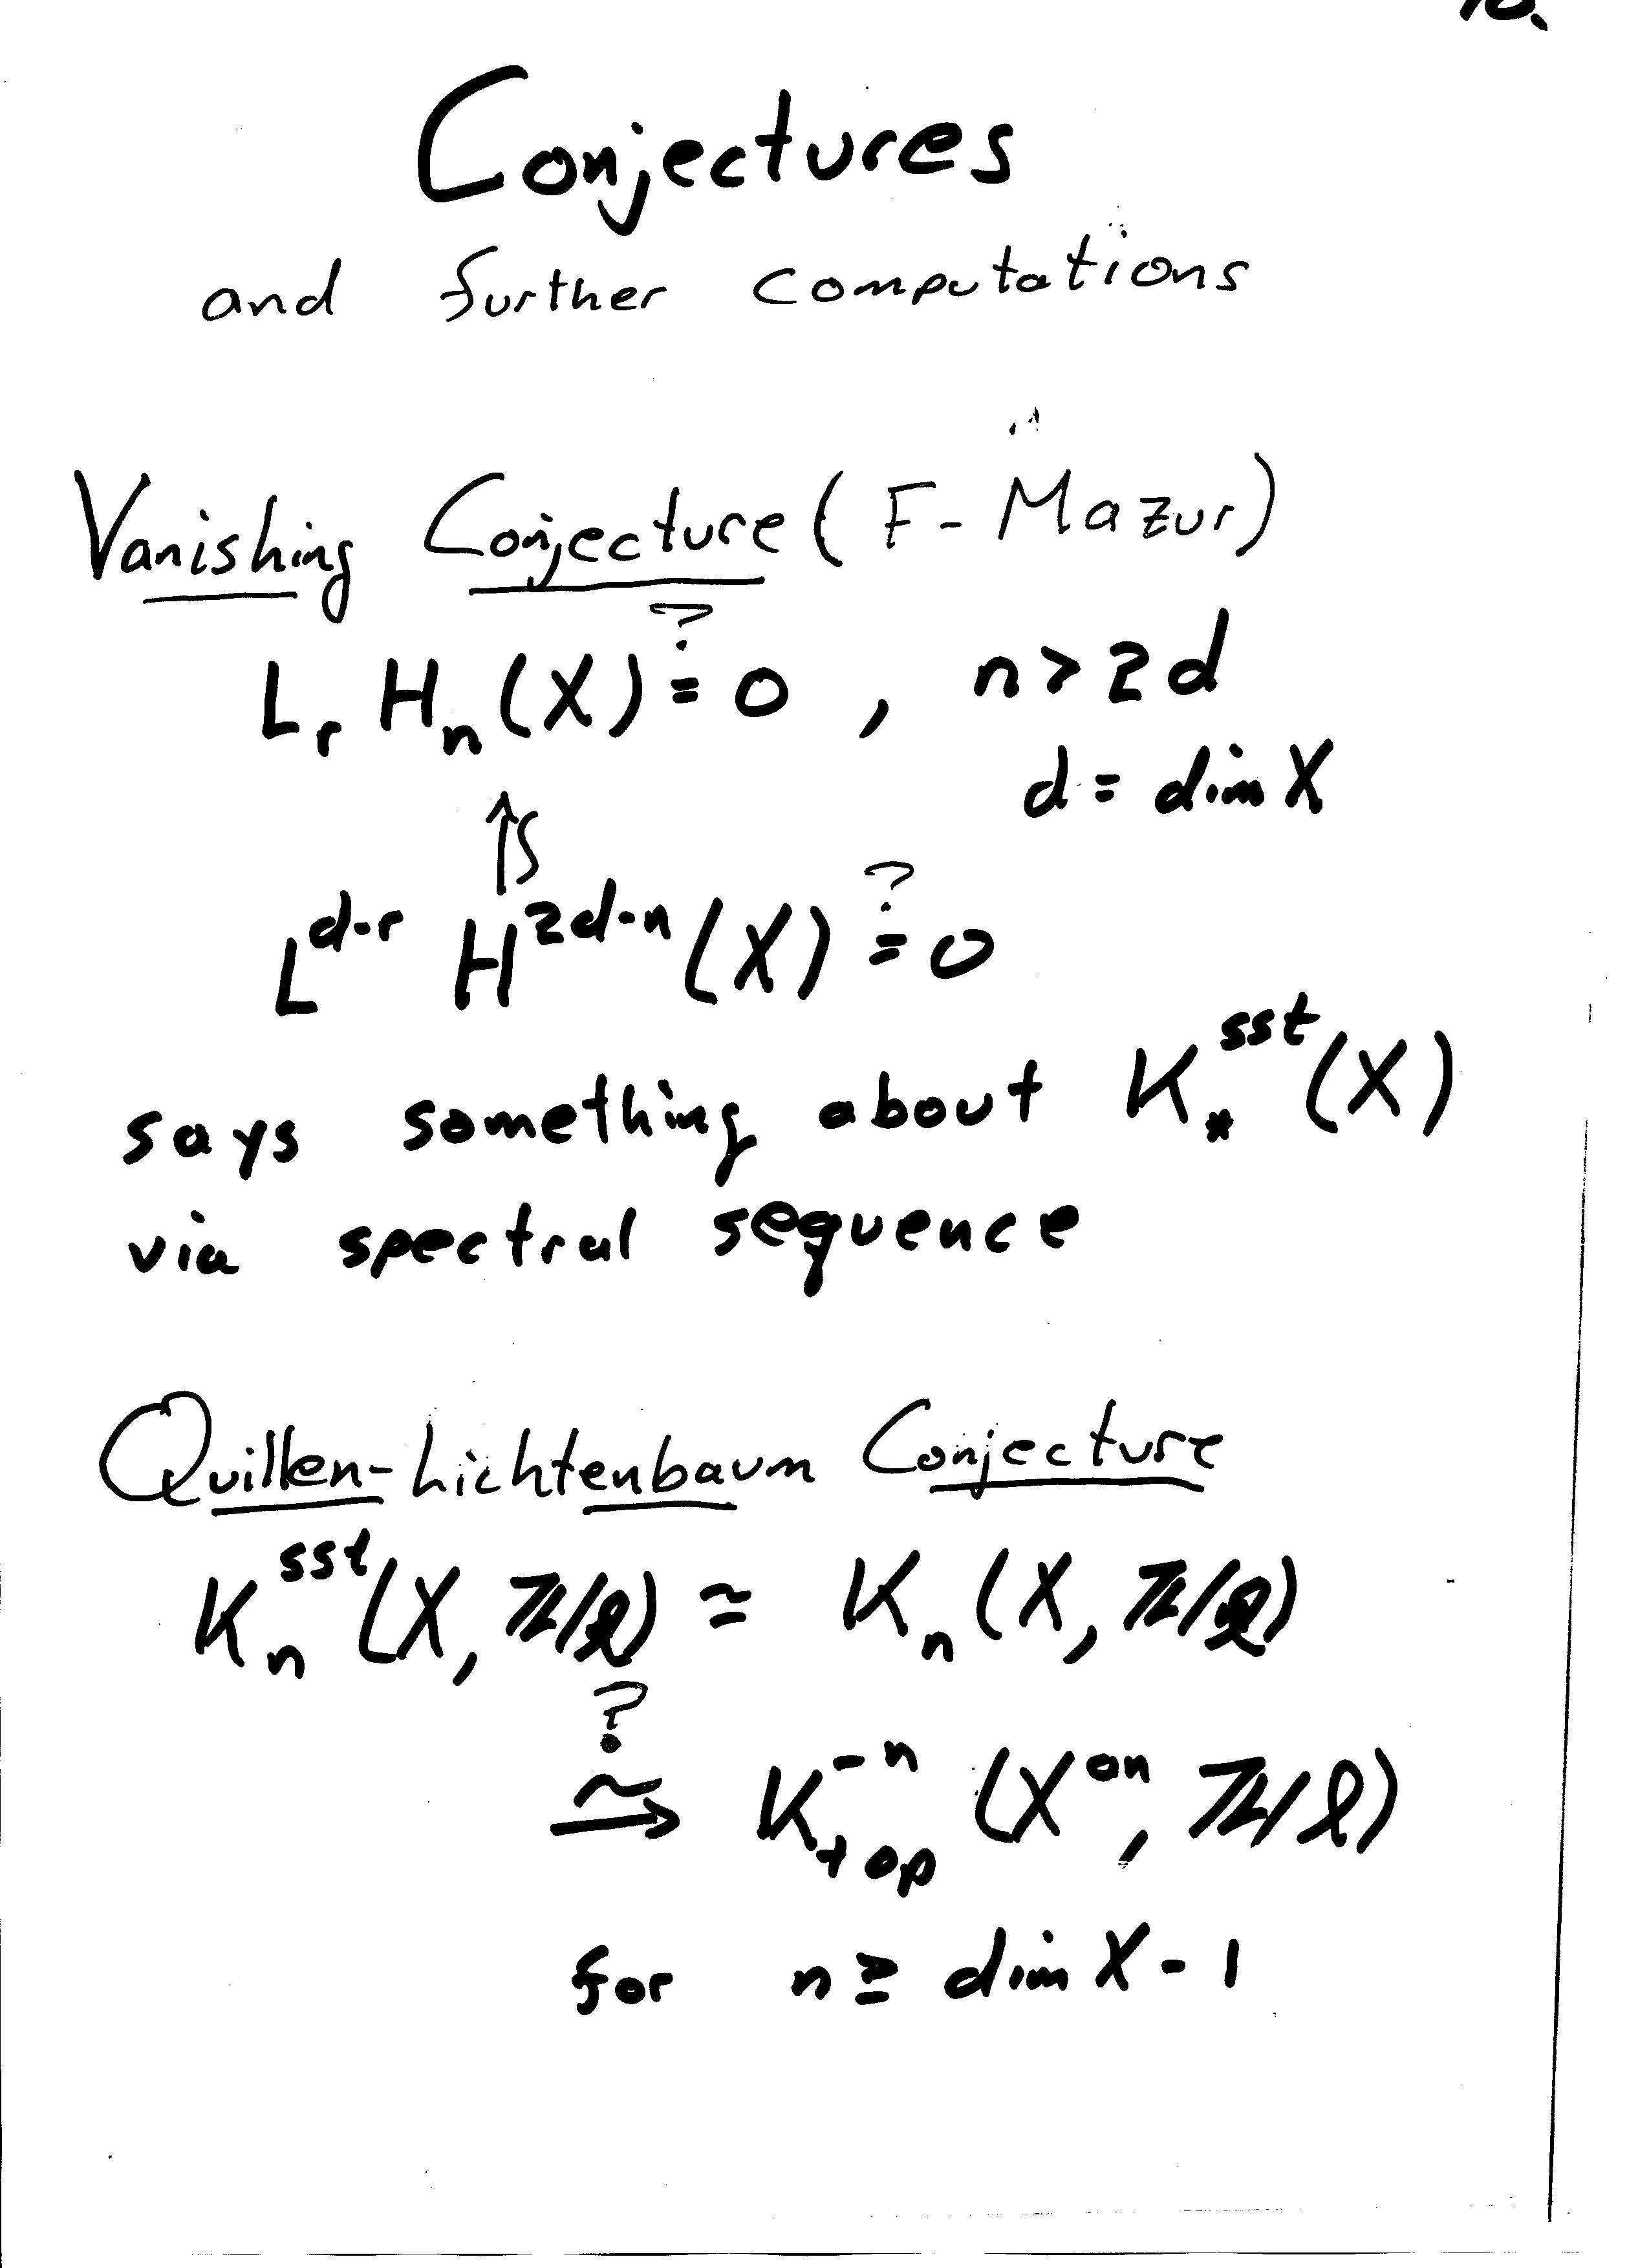 Conjectures
and further computations
Vanishing Conjecture (F-Mazur)
L_r H_n(X) ≟ 0 , n > 2d
d = dim X
↑ S
L^{d-r} H^{2d-n}(X) ≟ 0
says something about K_*^{sst}(X)
via spectral sequence
Quillen-Lichtenbaum Conjecture
K_n^{sst}(X, ℤ/ℓ) ≃ K_n(X, ℤ/ℓ)
?
⥲ K_{top}^{-n}(X^{an}, ℤ/ℓ)
for n ≥ dim X - 1